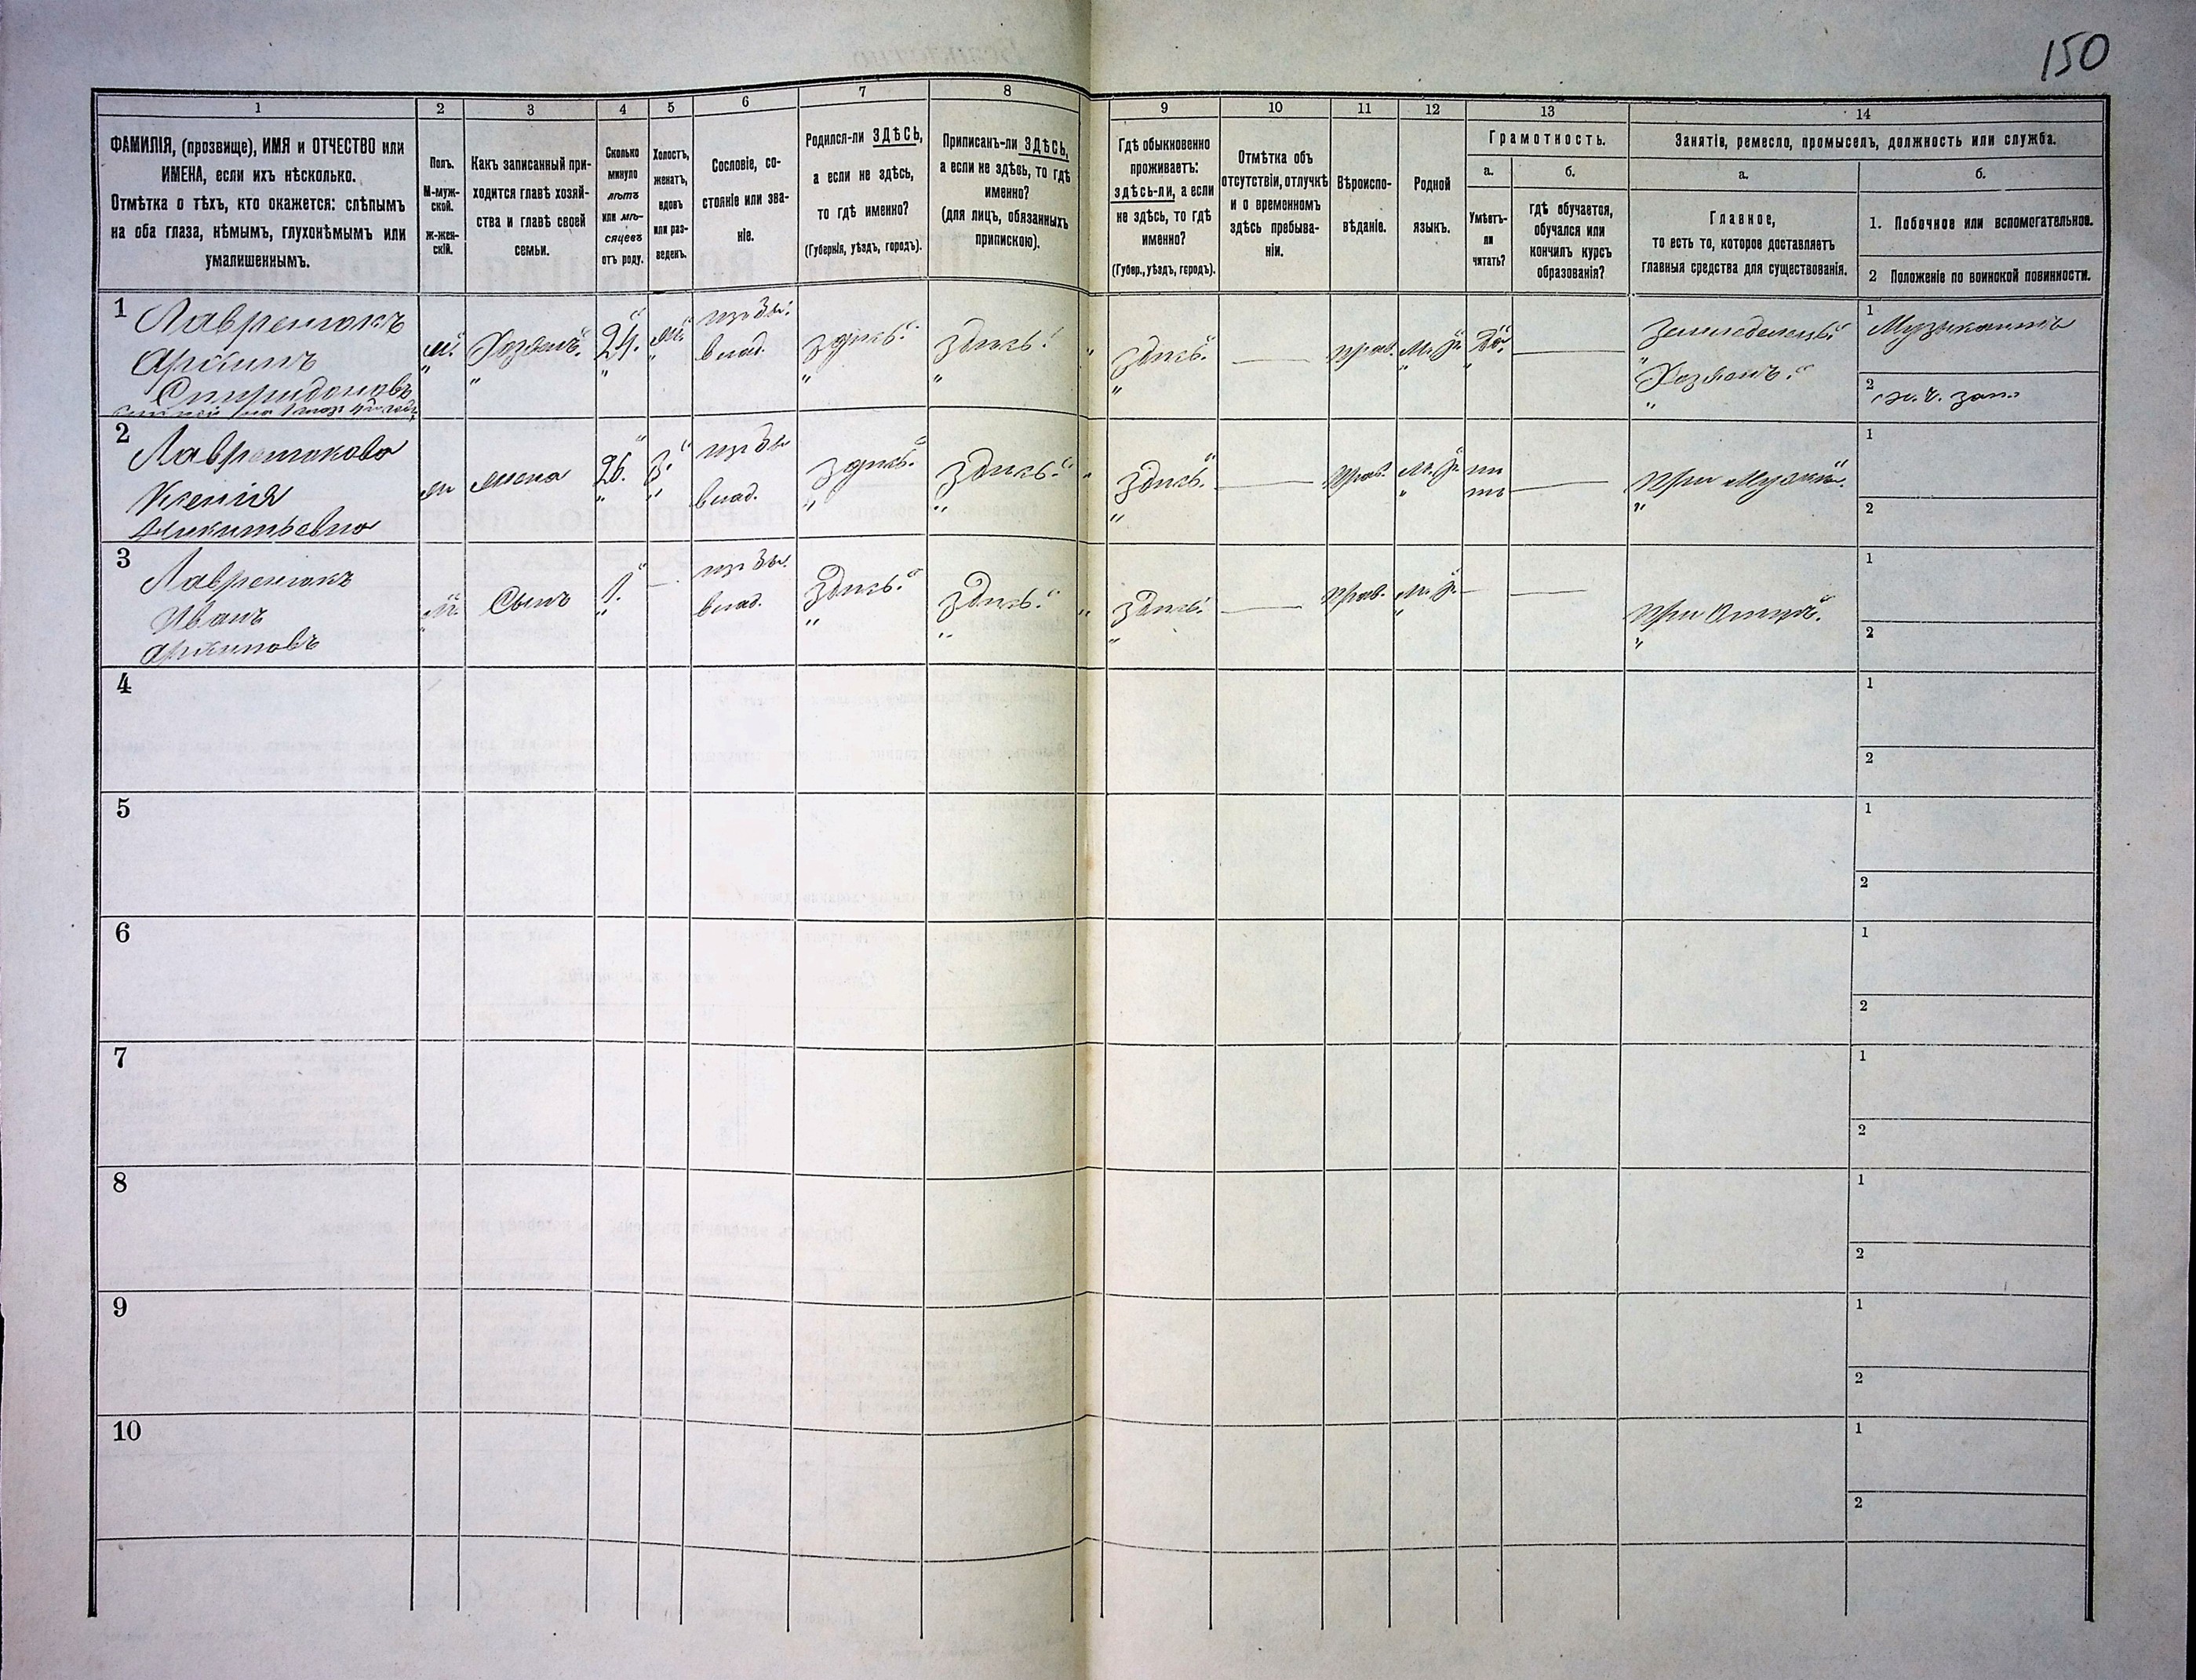 150
1
2
3
4
5
6
7
8
9
10
11
12
13
14
ФАМИЛІЯ, (прозвище), ИМЯ и ОТЧЕСТВО или
ИМЕНА, если ихъ нѣсколько.
Отмѣтка о тѣхъ, кто окажется: слѣпымъ
на оба глаза, нѣмымъ, глухонѣмымъ или
умалишеннымъ.
Полъ.
М-муж-
ской.
ж-жен-
скій.
Какъ записанный при-
ходится главѣ хозяй-
ства и главѣ своей
семьи.
Сколько
минуло
лѣтъ
или мѣ-
сяцевъ
отъ роду.
Холостъ,
женатъ,
вдовъ
или раз-
веденъ.
Сословіе, со-
стояніе или зва-
ніе.
Родился-ли ЗДѢСЬ,
а если не здѣсь,
то гдѣ именно?
(Губернія, уѣздъ, городъ).
Приписанъ-ли ЗДѢСЬ,
а если не здѣсь, то гдѣ
именно?
(для лицъ, обязанныхъ
припискою).
Гдѣ обыкновенно
проживаетъ:
здѣсь-ли, а если
не здѣсь, то гдѣ
именно?
(Губер., уѣздъ, городъ).
Отмѣтка объ
отсутствіи, отлучкѣ
и о временномъ
здѣсь пребыва-
ніи.
Вѣроиспо-
вѣданіе.
Родной
языкъ.
Грамотность.
а.
Умѣетъ-
ли
читать?
б.
гдѣ обучается,
обучался или
кончилъ курсъ
образованія?
Занятіе, ремесло, промыселъ, должность или служба.
а.
Главное,
то есть то, которое доставляетъ
главныя средства для существованія.
б.
1. Побочное или вспомогательное.
2 Положеніе по воинской повинности.
1
Лавренюкъ
Архипъ
Спиридоновъ
м.
Хозяинъ.
24.
из бы:
влад.
здѣсь.
здѣсь.
здѣсь.
прав.
Да.
Земледелецъ
Хозяинъ.
1
Музыкантъ
2
2
Лавренюкова
Ксенія
Никитьевна
жена
26.
из бы
влад.
здѣсь.
здѣсь.
здѣсь.
прав.
при Мужѣ.
1
2
3
Лавренюкъ
Иванъ
Архиповъ
м.
Сынъ
1.
из бы.
влад.
здѣсь.
здѣсь.
здѣсь.
прав.
при Отцѣ.
1
2
4
1
2
5
1
2
6
1
2
7
1
2
8
1
2
9
1
2
10
1
2